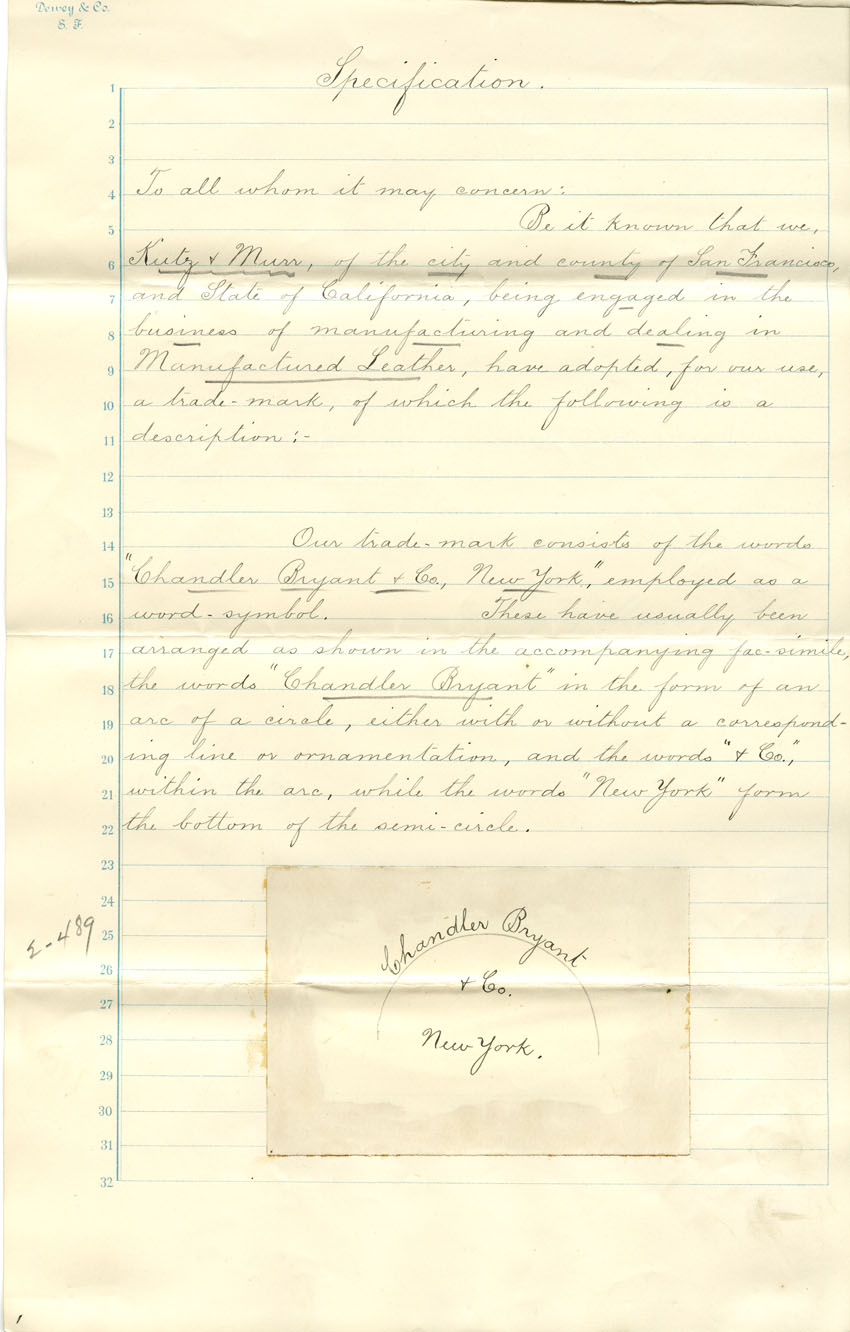 Dewey & Co.
S. F.
Specification.
1
2
3
4 To all whom it may concern:
5 Be it known that we,
6 Kutz & Murr, of the city and county of San Francisco,
7 and State of California, being engaged in the
8 business of manufacturing and dealing in
9 Manufactured Leather, have adopted, for our use,
10 a trade-mark, of which the following is a
11 description:-
12
13
14 Our trade-mark consists of the words
15 "Chandler Bryant & Co., New York," employed as a
16 word-symbol. These have usually been
17 arranged as shown in the accompanying fac-simile,
18 the words "Chandler Bryant" in the form of an
19 arc of a circle, either with or without a correspond-
20 ing line or ornamentation, and the words "& Co.,"
21 within the arc, while the words "New York" form
22 the bottom of the semi-circle.
23
24
25
26
27
28
29
30
31
32
Σ-489
Chandler Bryant
& Co.
New York.
1